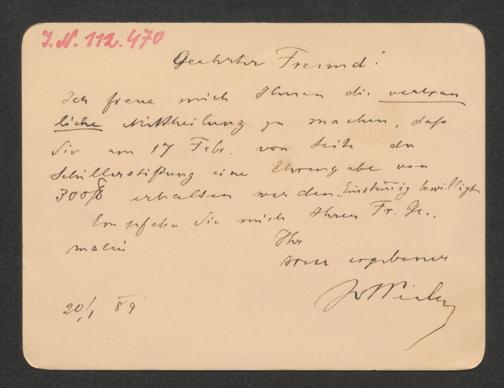 J.N. 112.470
Geehrter Freund!
Ich freue mich Ihnen die vertrau
liche Mittheilung zu machen, daß
Sie am 17 Febr. von Seite der
Schillerstiftung eine Ehrengabe von
300 erhalten werden. Einstimmig bewilligt
Empfehlen Sie mich Ihrer Fr. Ge..
malin
Ihr
treu ergebener
20/1 89